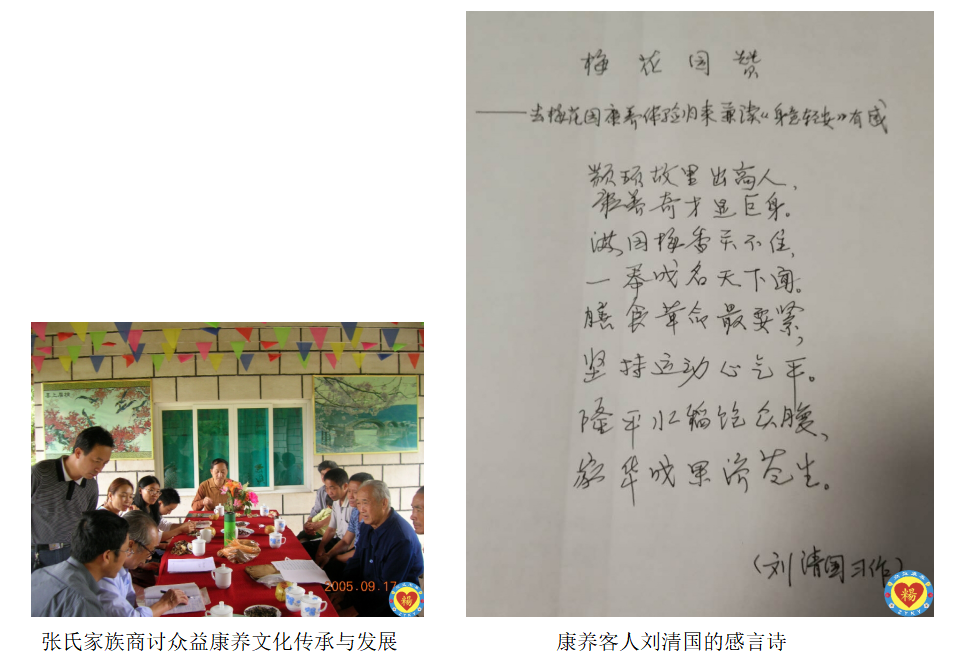 梅花园赞
——去梅花园康养体验归来兼读《身急轻安》有感
颛顼故里出高人，
康养奇才显巨身。
满园梅香关不住，
一举成名天下闻。
膳食革命最要紧，
坚持运动心气平。
隆平水稻饱众腹，
家华成果济苍生。
（刘清国习作）
2005.09.17
张氏家族商讨众益康养文化传承与发展
康养客人刘清国的感言诗